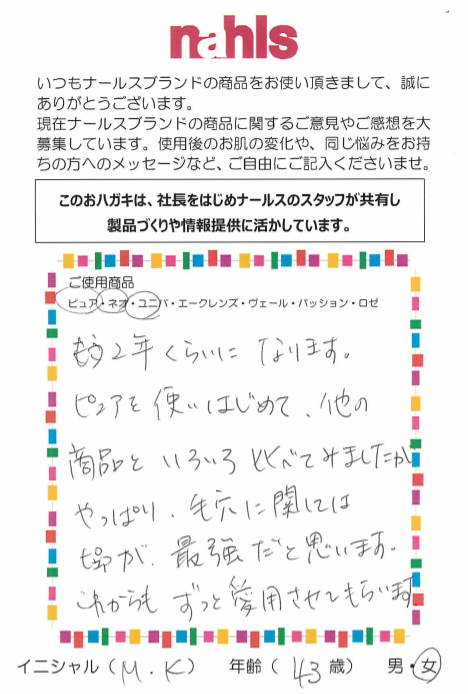 nahls
いつもナールスブランドの商品をお使い頂きまして、誠に
ありがとうございます。
現在ナールスブランドの商品に関するご意見やご感想を大
募集しています。使用後のお肌の変化や、同じ悩みをお持
ちの方へのメッセージなど、ご自由にご記入くださいませ。
このおハガキは、社長をはじめナールスのスタッフが共有し
製品づくりや情報提供に活かしています。
ご使用商品
ピュア・ネオ・ユニバ・エークレンズ・ヴェール・パッション・ロゼ
もう2年くらいになります。
ピュアを使いはじめて、他の
商品といろいろ比べてみましたが
やっぱり、毛穴に関しては
が、最強だと思います。
これからもずっと愛用させてもらいます。
イニシャル（M.K） 年齢（43歳） 男・女